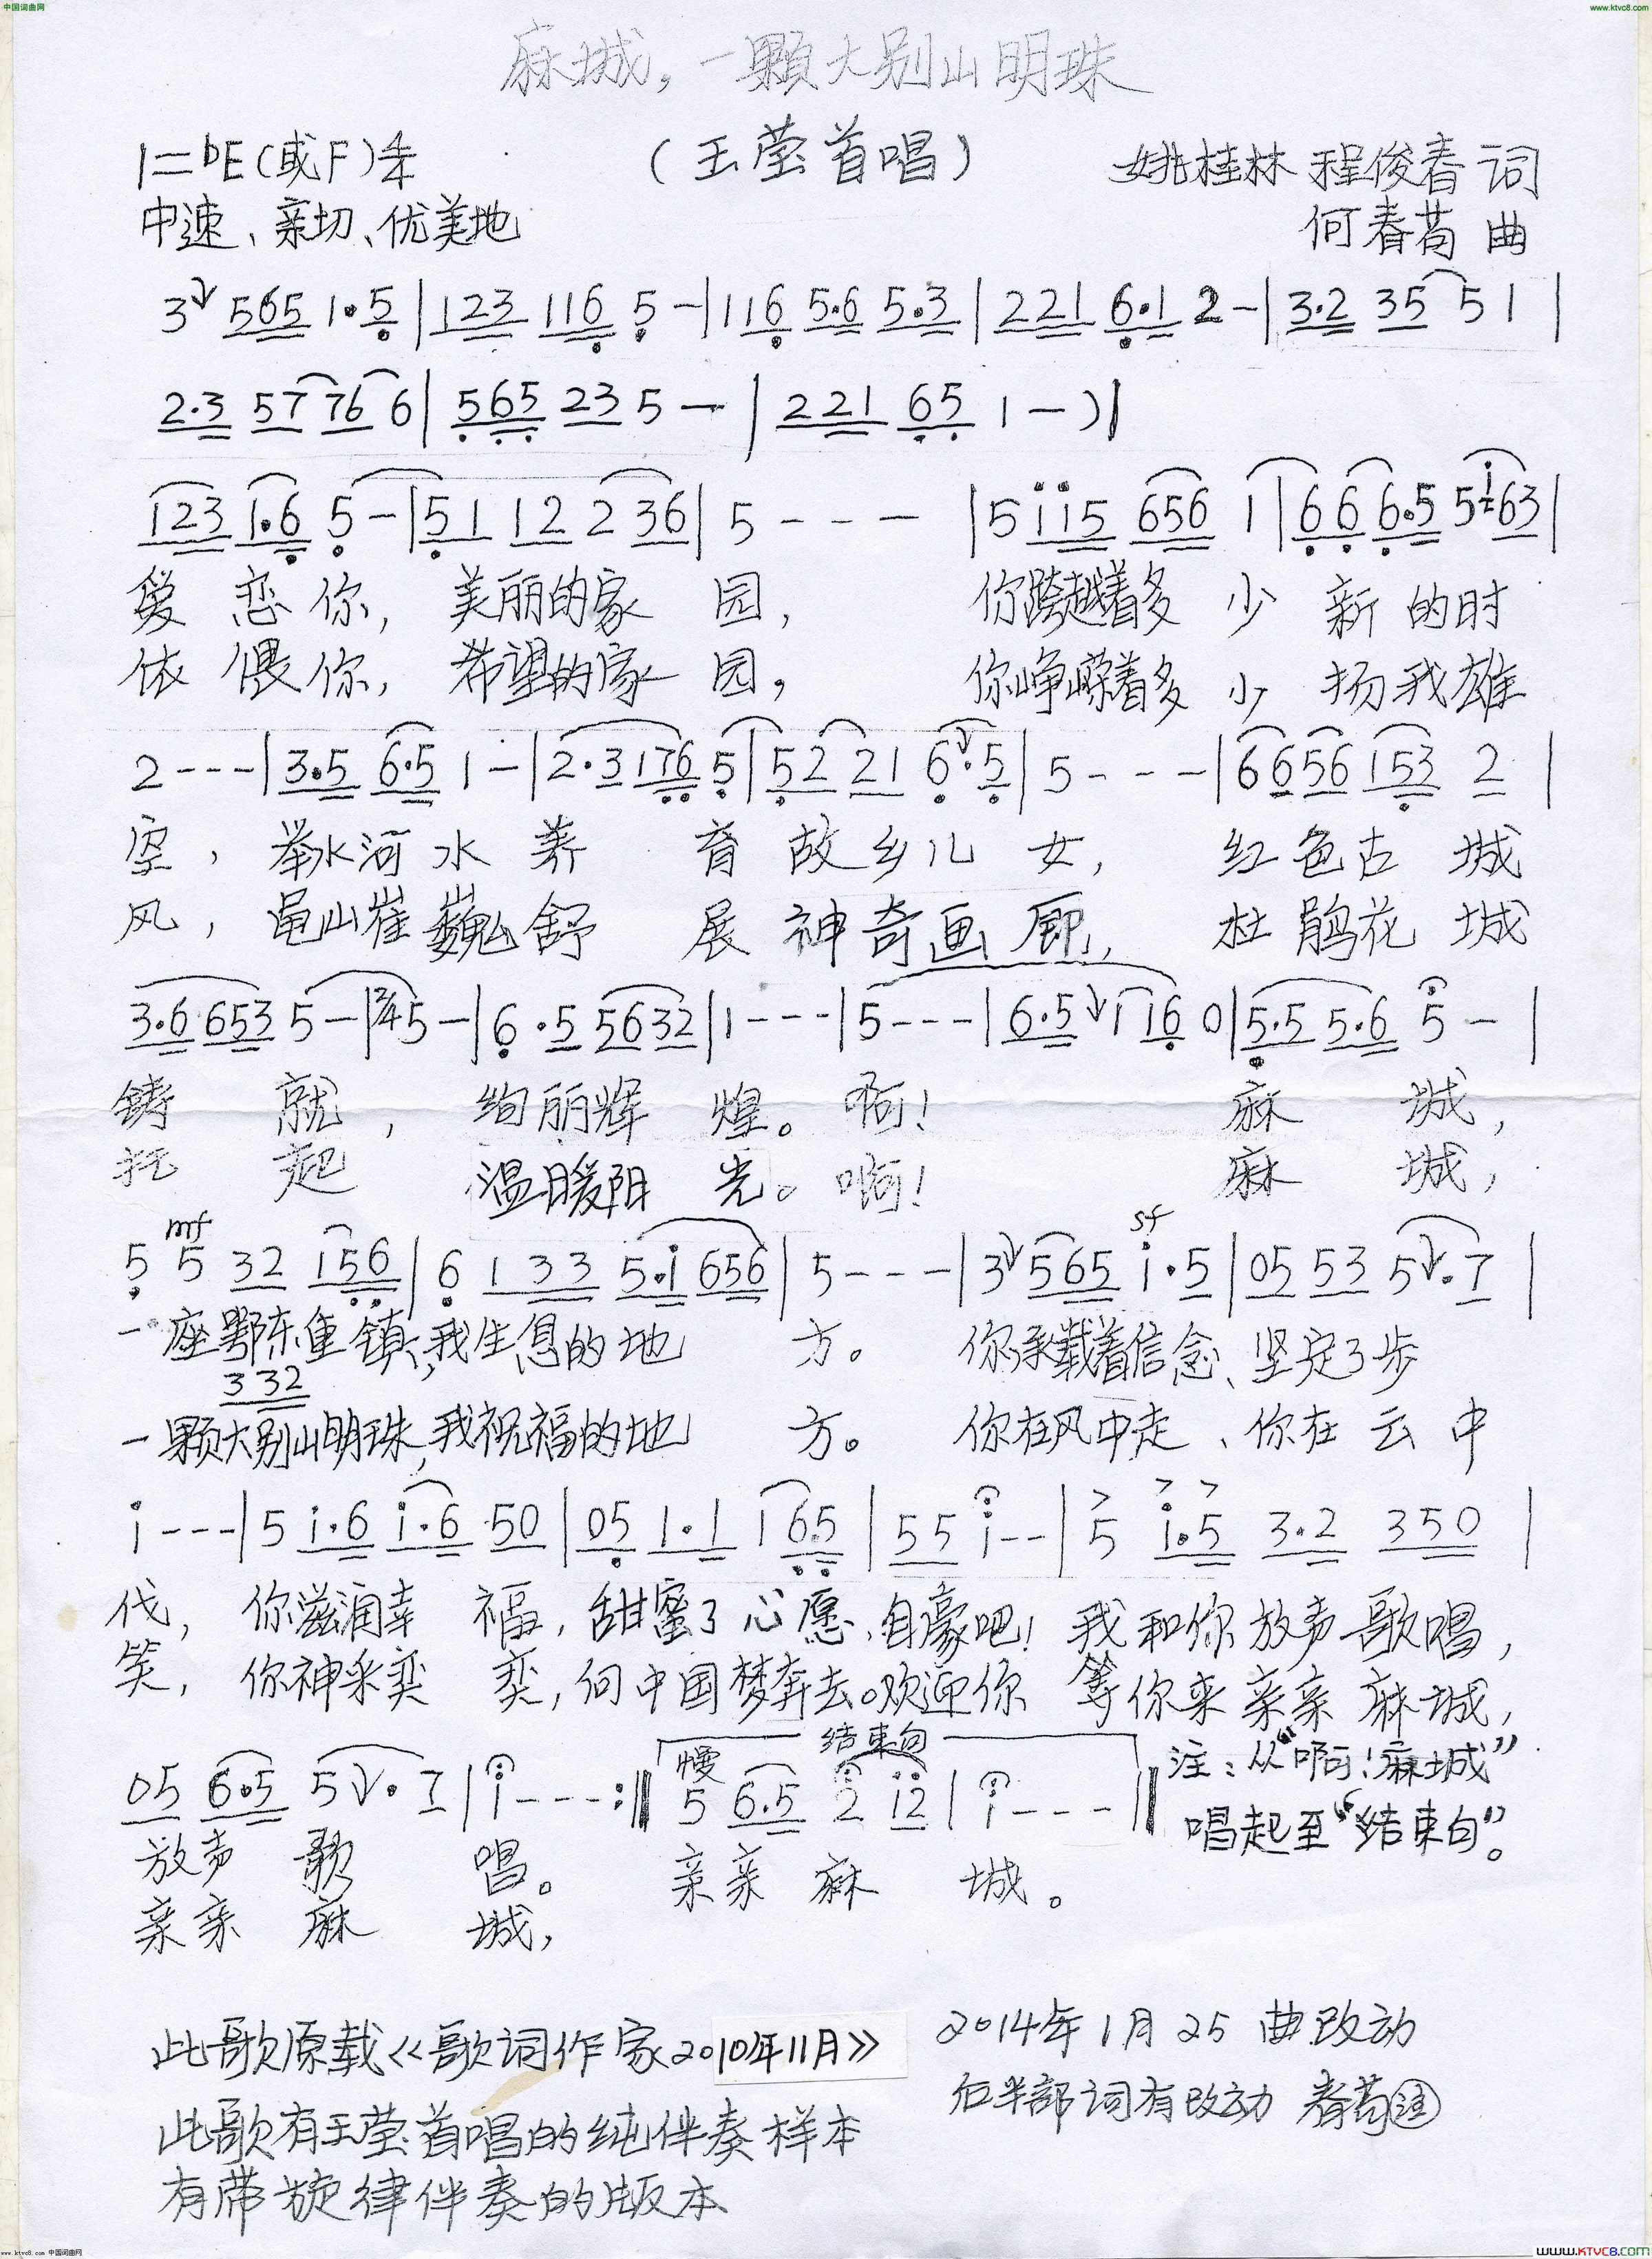 中国词曲网
www.ktvc8.com
麻城,一颗大别山明珠
1=bE(或F)4/4
(王莹首唱)
姚桂林 程俊春 词
中速、亲切、优美地
何春茑 曲
3 565 1·5|123 116 5-|116 5·6 5·3|221 6·1 2-|3·2 35 51|
2·3 57 76 6|565 23 5-|221 65 1-)|
123 1·6 5-|51 12 2 36|5---|5115 656 1|66 6·5 5163|
爱恋你,美丽的家园,你跨越着多少新的时
依偎你,希望的家园,你峥嵘着多少扬我雄
2---|3·5 6·5 1-|2·3176 5|52 21 6·5|5---|6656 153 2|
空,举水河水养育故乡儿女,红色古城
风,龟山崔巍舒展神奇画廊,杜鹃花城
3·6 653 5-|2/4 5-|6·5 5632|1---|5---|6·5 1 16 0|5·5 5·6 5-|
铸就,绚丽辉煌。啊!麻城,
托起 温暖阳光。啊!麻城,
mf sf
5 5 32 156|6 1 33 5·1 656|5---|3 565 1·5|05 53 5·7|
一座鄂东重镇,我生息的地方。你承载着信念、坚定了步
3 32
一颗大别山明珠,我祝福的地方。你在风中走、你在云中
1---|5 1·6 1·6 50|05 1·1 1 65|55 1--|5 1·5 3·2 350|
伐,你滋润幸福,甜蜜了心愿、自豪吧!我和你放声歌唱,
笑,你神采奕奕,向中国梦奔去。欢迎你 等你来亲亲麻城,
慢 结束句
05 6·5 5·7|1---:‖5 6·5 2 12|1---‖
注:从“啊!麻城”
唱起至“结束句”。
放声歌唱。亲亲麻城。
亲亲麻城,
此歌原载《歌词作家2010年11月》
2014年1月25 曲改动
后半部词有改动 春茑注
此歌有王莹首唱的纯伴奏样本
有带旋律伴奏的版本
www.ktvc8.com 中国词曲网
www.KTVC8.COM